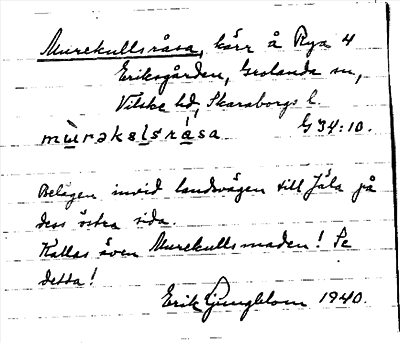 Murekullsråsa, kärr å Rya 4
Eriksgården, Grolanda sn,
Vilske hd, Skaraborgs l.
mùrəkslsråsa G 34:10.
Belägen invid landsvägen till Jäla på
dess östra sida.
Kallas även Murekullsmaden! Se
detta!
Erik Ljungblom 1940.